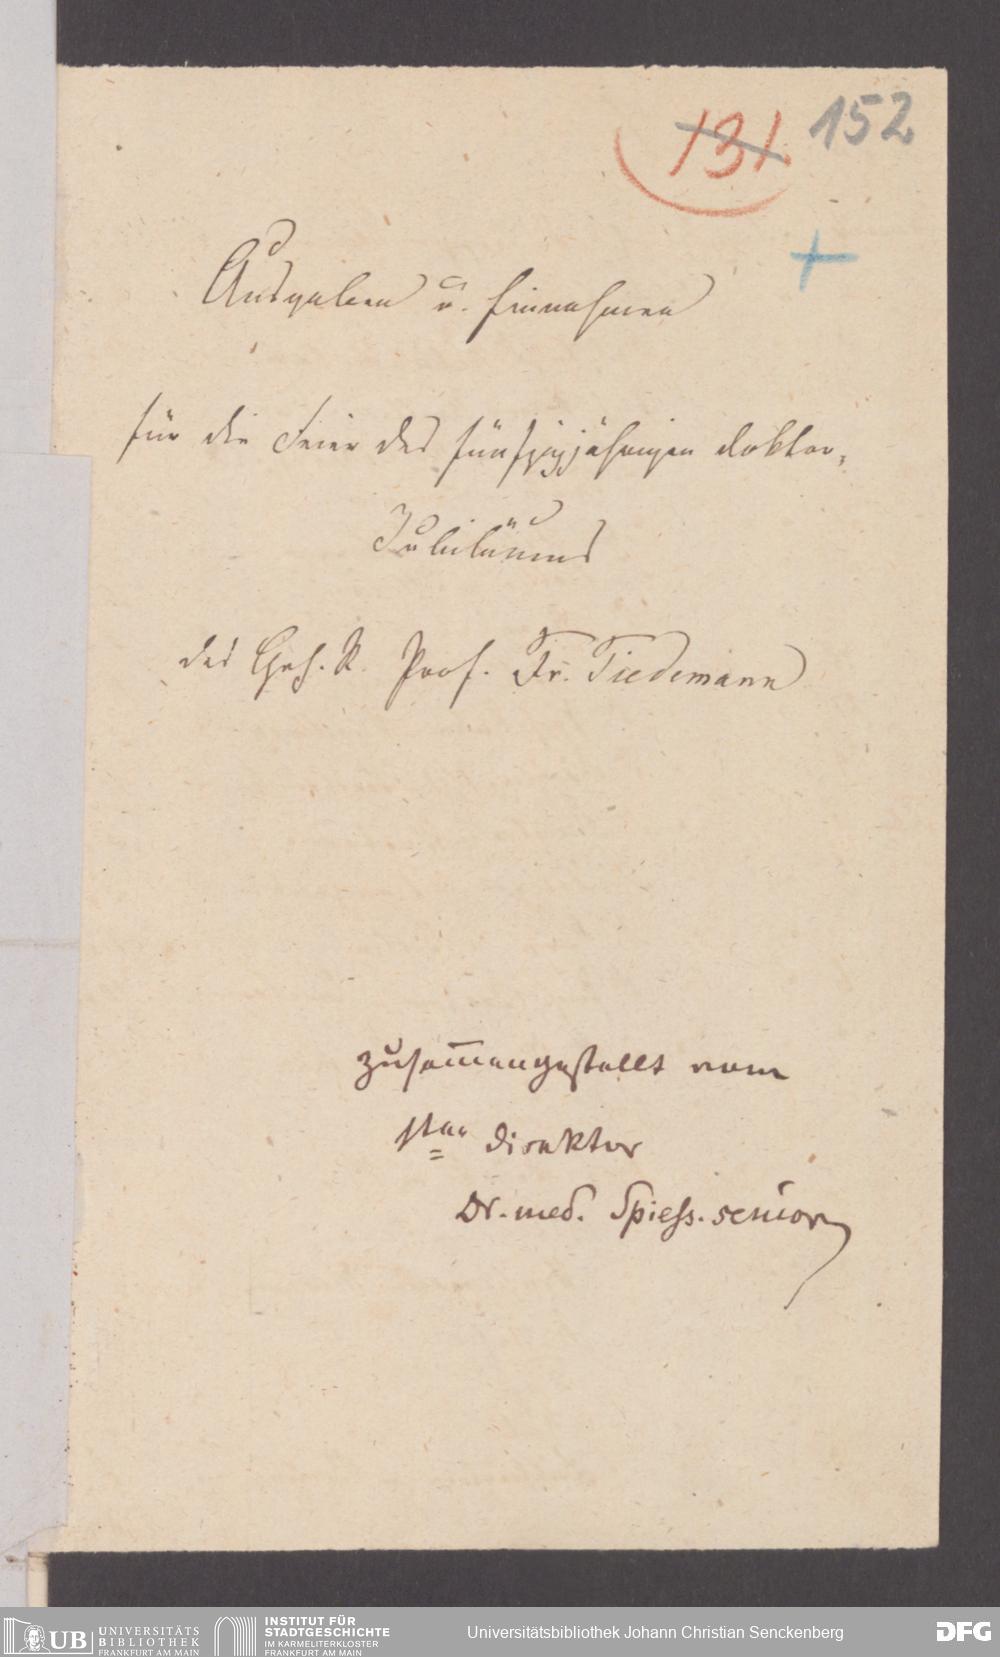 131 152
+
Ausgaben u. Einnahmen
für die Feier des fünfzigjährigen Doktor-
Jubiläums
des Geh. R. Prof. Fr. Tiedemann
zusam̅engestellt vom
Direktor
Dr. med. Spiess. senior
UB UNIVERSITÄTS
BIBLIOTHEK
FRANKFURT AM MAIN
INSTITUT FÜR
STADTGESCHICHTE
IM KARMELITERKLOSTER
FRANKFURT AM MAIN
Universitätsbibliothek Johann Christian Senckenberg
DFG